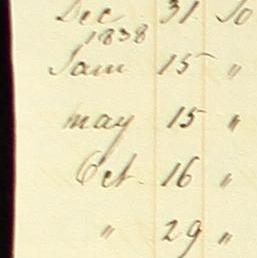 Dec 31 To
1838
Jan 15 "
may 15 "
Oct. 16 "
" 29 "